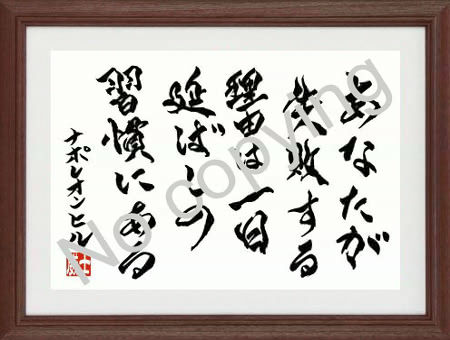 あなたが
失敗する
理由は一日
延ばしの
習慣にある
ナポレオンヒル
No copying